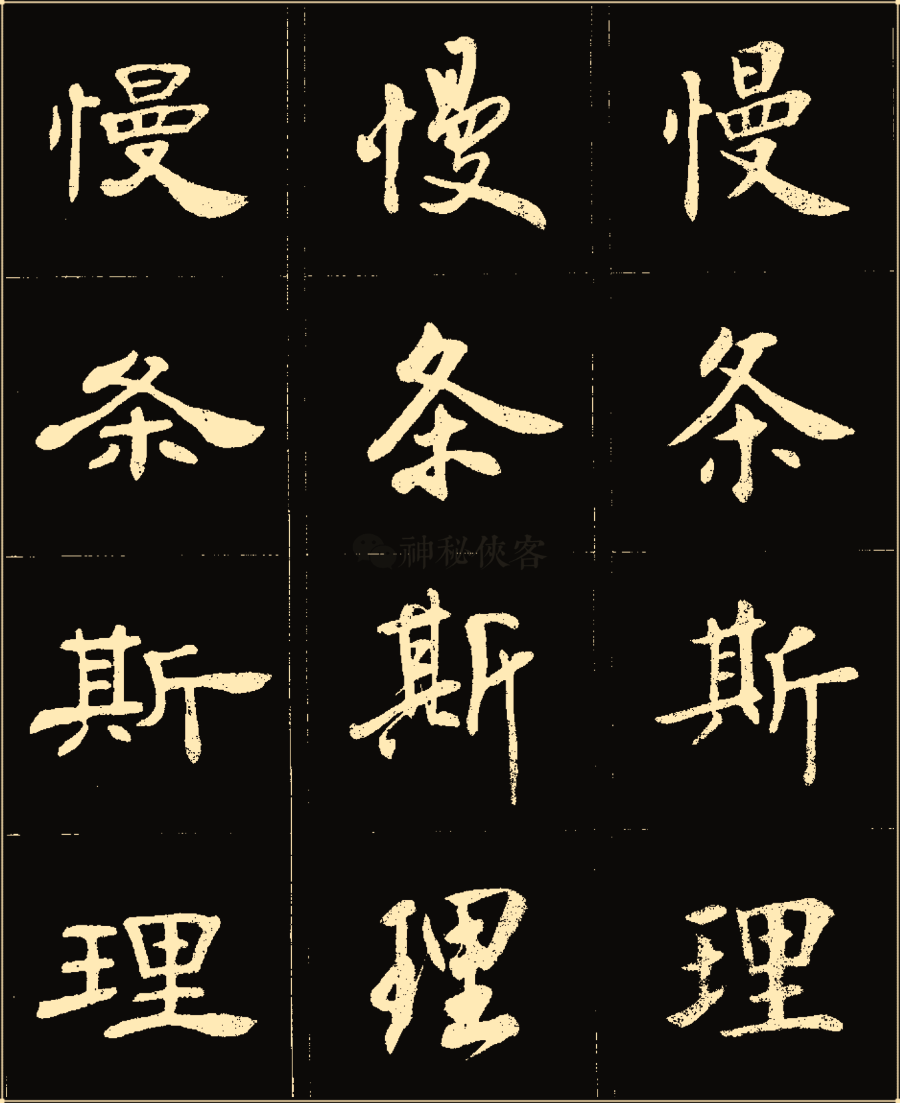 慢 慢 慢
条 条 条
神秘侠客
斯 斯 斯
理 理 理